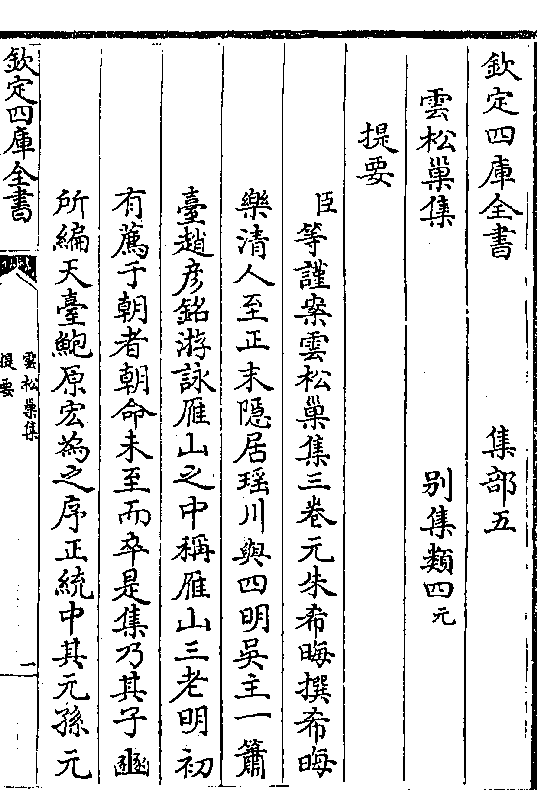 欽定四庫全書　　　集部五
雲松巢集　　　別集類四元
提要
臣等謹案雲松巢集三卷元朱希晦撰希晦
樂清人至正末隱居瑶川與四明吳主一簫
臺趙彥銘游詠雁山之中稱雁山三老明初
有薦于朝者朝命未至而卒是集乃其子𠖎
所編天臺鮑原宏為之序正統中其元孫元
欽定四庫全書
雲松巢集
提要
一